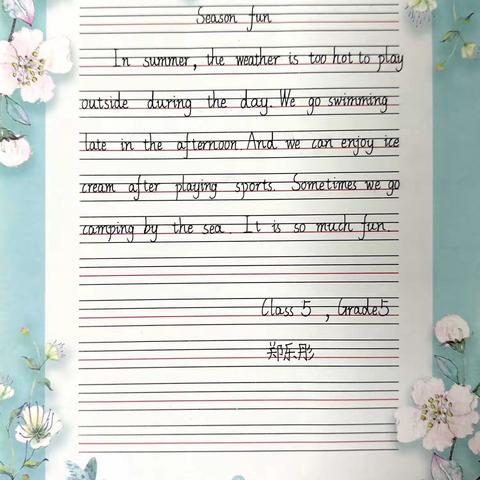 Season fun
In summer, the weather is too hot to play
outside during the day. We go swimming
late in the afternoon. And we can enjoy ice
cream after playing sports. Sometimes we go
camping by the sea. It is so much fun.
Class 5 , Grade5
郑乐彤